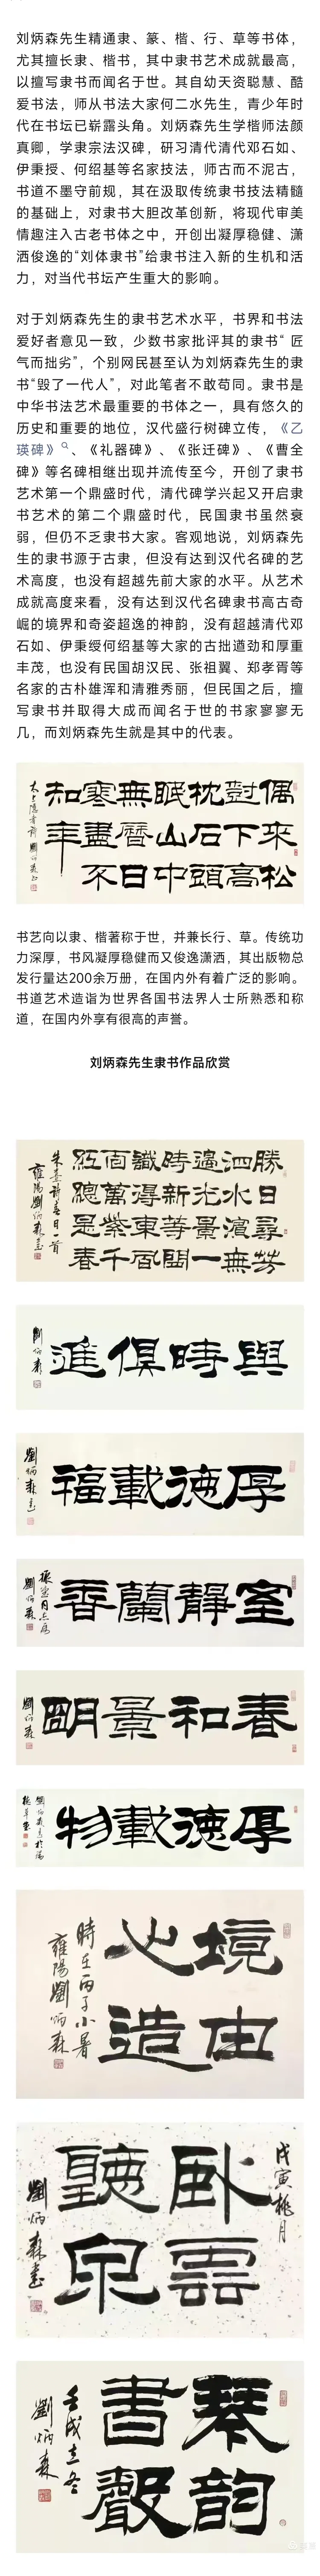 刘炳森先生精通隶、篆、楷、行、草等书体，
尤其擅长隶、楷书，其中隶书艺术成就最高，
以擅写隶书而闻名于世。其自幼天资聪慧、酷
爱书法，师从书法大家何二水先生，青少年时
代在书坛已崭露头角。刘炳森先生学楷师法颜
真卿，学隶宗法汉碑，研习清代清代邓石如、
伊秉授、何绍基等名家技法，师古而不泥古，
书道不墨守前规，其在汲取传统隶书技法精髓
的基础上，对隶书大胆改革创新，将现代审美
情趣注入古老书体之中，开创出凝厚稳健、潇
洒俊逸的“刘体隶书”给隶书注入新的生机和活
力，对当代书坛产生重大的影响。
对于刘炳森先生的隶书艺术水平，书界和书法
爱好者意见一致，少数书家批评其的隶书“ 匠
气而拙劣”，个别网民甚至认为刘炳森先生的隶
书“毁了一代人”，对此笔者不敢苟同。隶书是
中华书法艺术最重要的书体之一，具有悠久的
历史和重要的地位，汉代盛行树碑立传，《乙
瑛碑》、《礼器碑》、《张迁碑》、《曹全
碑》等名碑相继出现并流传至今，开创了隶书
艺术第一个鼎盛时代，清代碑学兴起又开启隶
书艺术的第二个鼎盛时代，民国隶书虽然衰
弱，但仍不乏隶书大家。客观地说，刘炳森先
生的隶书源于古隶，但没有达到汉代名碑的艺
术高度，也没有超越先前大家的水平。从艺术
成就高度来看，没有达到汉代名碑隶书高古奇
崛的境界和奇姿超逸的神韵，没有超越清代邓
石如、伊秉绶何绍基等大家的古拙遒劲和厚重
丰茂，也没有民国胡汉民、张祖翼、郑孝胥等
名家的古朴雄浑和清雅秀丽，但民国之后，擅
写隶书并取得大成而闻名于世的书家寥寥无
几，而刘炳森先生就是其中的代表。
偶來松
對下高
枕石頭
眠山中
無曆日
寒盡不
知年
太上隱者詩 劉炳森書
书艺向以隶、楷著称于世，并兼长行、草。传统功
力深厚，书风凝厚稳健而又俊逸潇洒，其出版物总
发行量达200余万册，在国内外有着广泛的影响。
书道艺术造诣为世界各国书法界人士所熟悉和称
道，在国内外享有很高的声誉。
刘炳森先生隶书作品欣赏
勝日尋芳
泗水濱無
邊光景一
時新等閒
識得東風
面萬紫千
紅總是春
朱熹詩春日一首
雍陽劉炳森書
與時俱進
劉炳森
厚德載福
劉炳森書
室靜蘭香
劉炳森
春和景明
劉炳森
厚德載物
境由
心造
時在丙子小暑
雍陽劉炳森
戊寅桃月
卧雲
聽泉
劉炳森書
琴韵
書聲
壬戌立冬
劉炳森